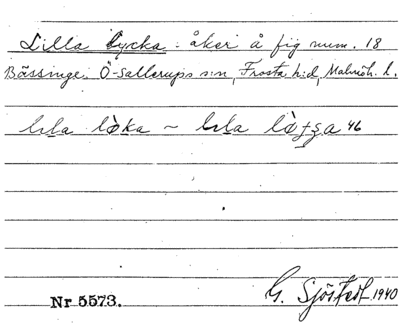 Lilla Lycka: åker å fig num. 18
Bässinge. Ö-Sallerups s:n, Frosta h:d, Malmöh. l.
lıla lòka ~ lıla 46
Nr 5573.
G. Sjöstedt 1940